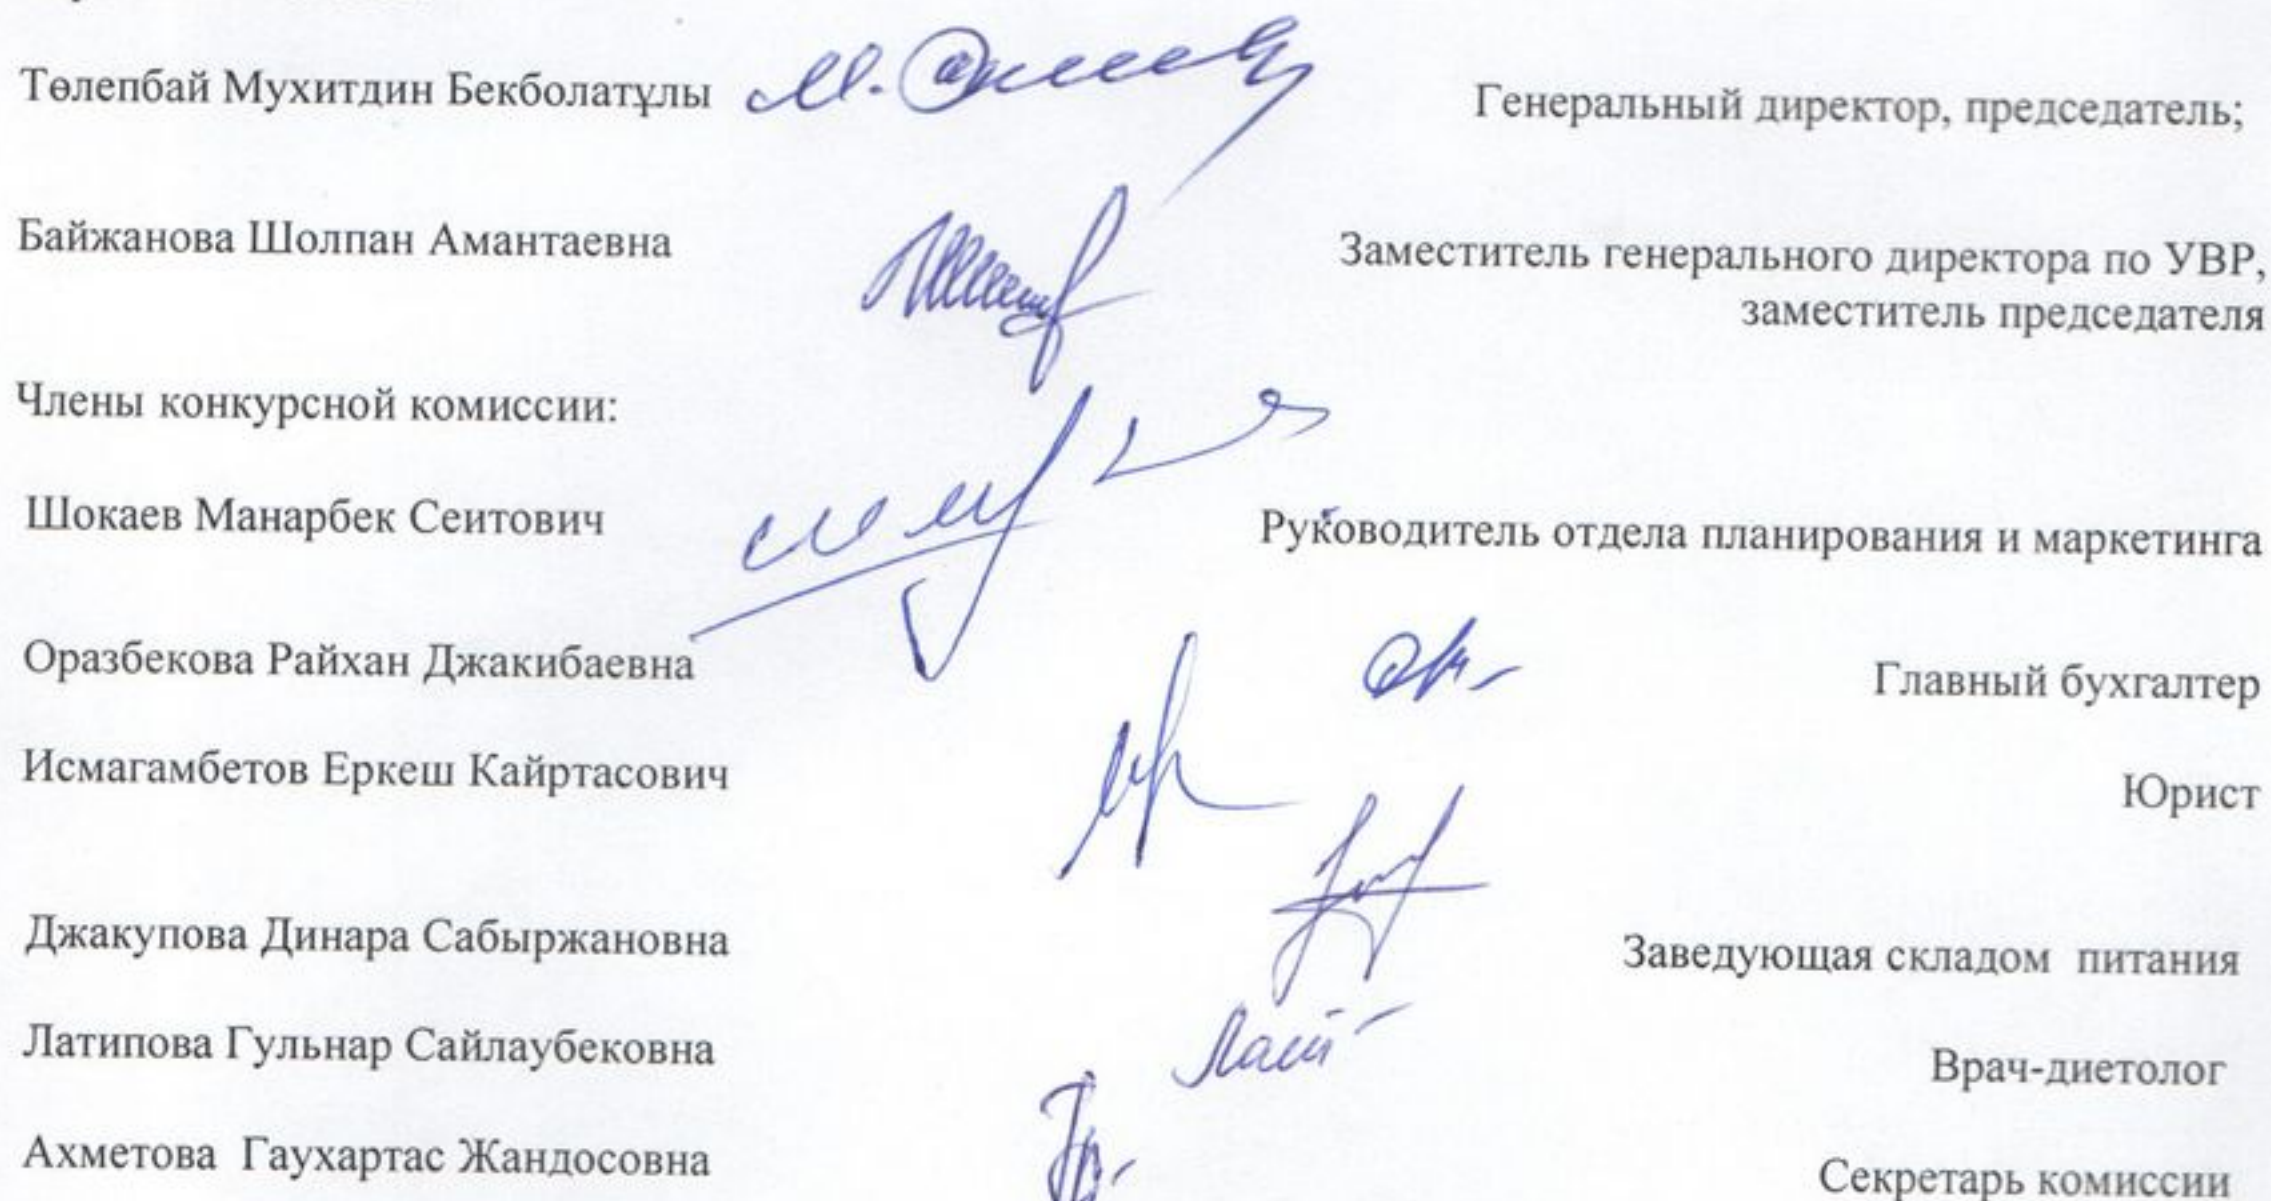 Төлепбай Мухитдин Бекболатұлы Генеральный директор, председатель;
Байжанова Шолпан Амантаевна Заместитель генерального директора по УВР,
заместитель председателя
Члены конкурсной комиссии:
Шокаев Манарбек Сеитович Руководитель отдела планирования и маркетинга
Оразбекова Райхан Джакибаевна Главный бухгалтер
Исмагамбетов Еркеш Кайртасович Юрист
Джакупова Динара Сабыржановна Заведующая складом питания
Латипова Гульнар Сайлаубековна Врач-диетолог
Ахметова Гаухартас Жандосовна Секретарь комиссии